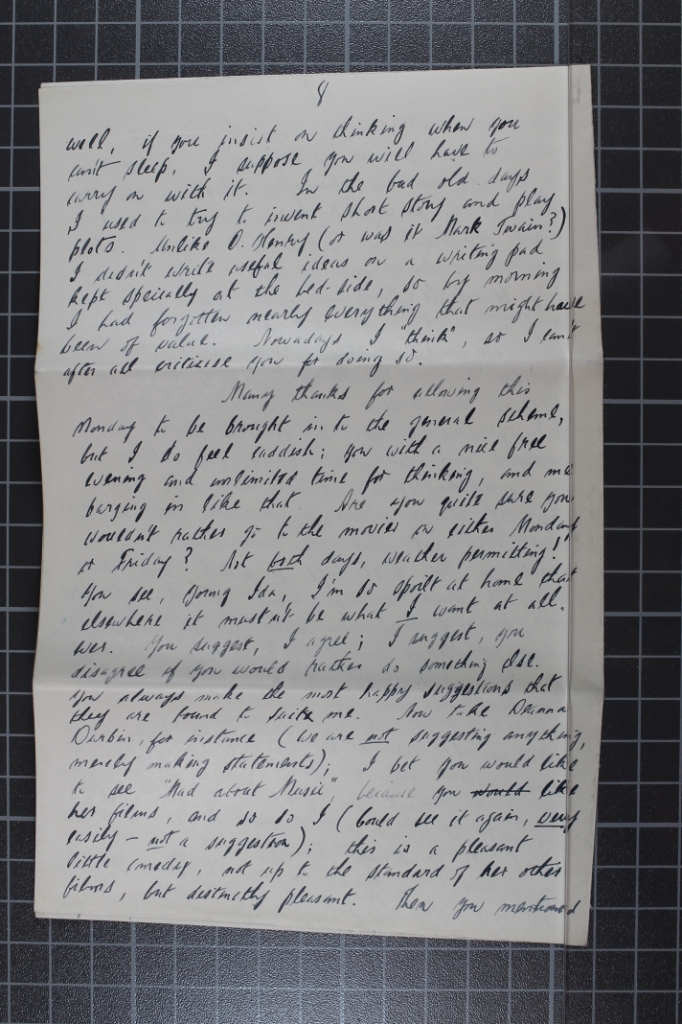 8
well, if you insist on thinking when you
can't sleep, I suppose you will have to
carry on with it. In the bad old days
I used to try to invent short story and play
plots. Unlike O. Henry (or was it Mark Twain?)
I didn't write useful ideas on a writing pad
kept specially at the bed-side, so by morning
I had forgotten nearly everything that might have
been of value. Nowadays I "think", so I can't
after all criticise you for doing so.
Many thanks for allowing this
Monday to be brought in to the general scheme,
but I do feel caddish; you with a nice free
evening and unlimited time for thinking, and me
barging in like that. Are you quite sure you
wouldn't rather go to the movies on either Monday
or Friday? Not both days, weather permitting!
You see, young Ida, I'm so spoilt at home that
elsewhere it mustn't be what I want at all.
ever. You suggest, I agree; I suggest, you
disagree if you would rather do something else.
You always make the most happy suggestions that
they are bound to suit me. Now take Deanna
Durbin, for instance (we are not suggesting anything,
merely making statements); I bet you would like
to see "Mad about Music", because you would like
her films, and so do I (Could see it again, very
easily – not a suggestion); this is a pleasant
little comedy, not up to the standard of her other
films, but distinctly pleasant. Then you mentioned